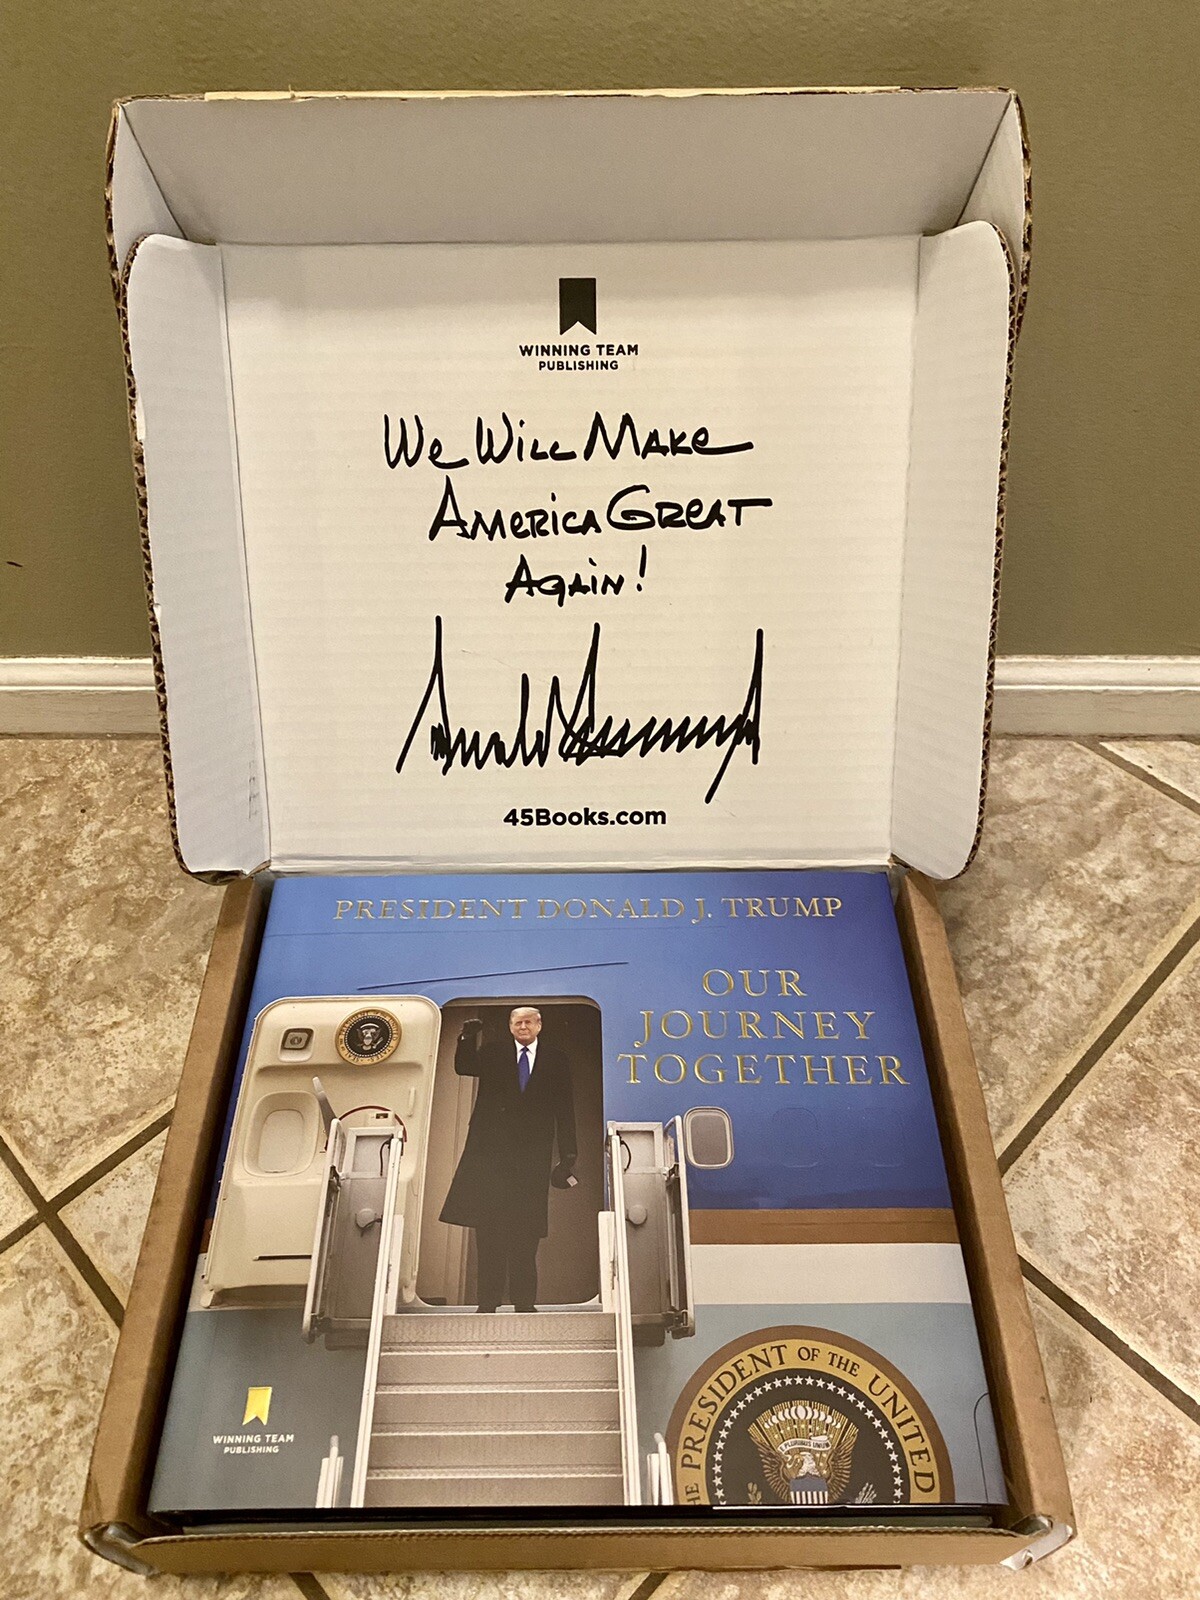 WINNING TEAM
PUBLISHING
We Will Make
America Great
Again!
45Books.com
PRESIDENT DONALD J. TRUMP
OUR
JOURNEY
TOGETHER
WINNING TEAM
PUBLISHING
PRESIDENT OF THE UNITED
E PLURIBUS UNUM